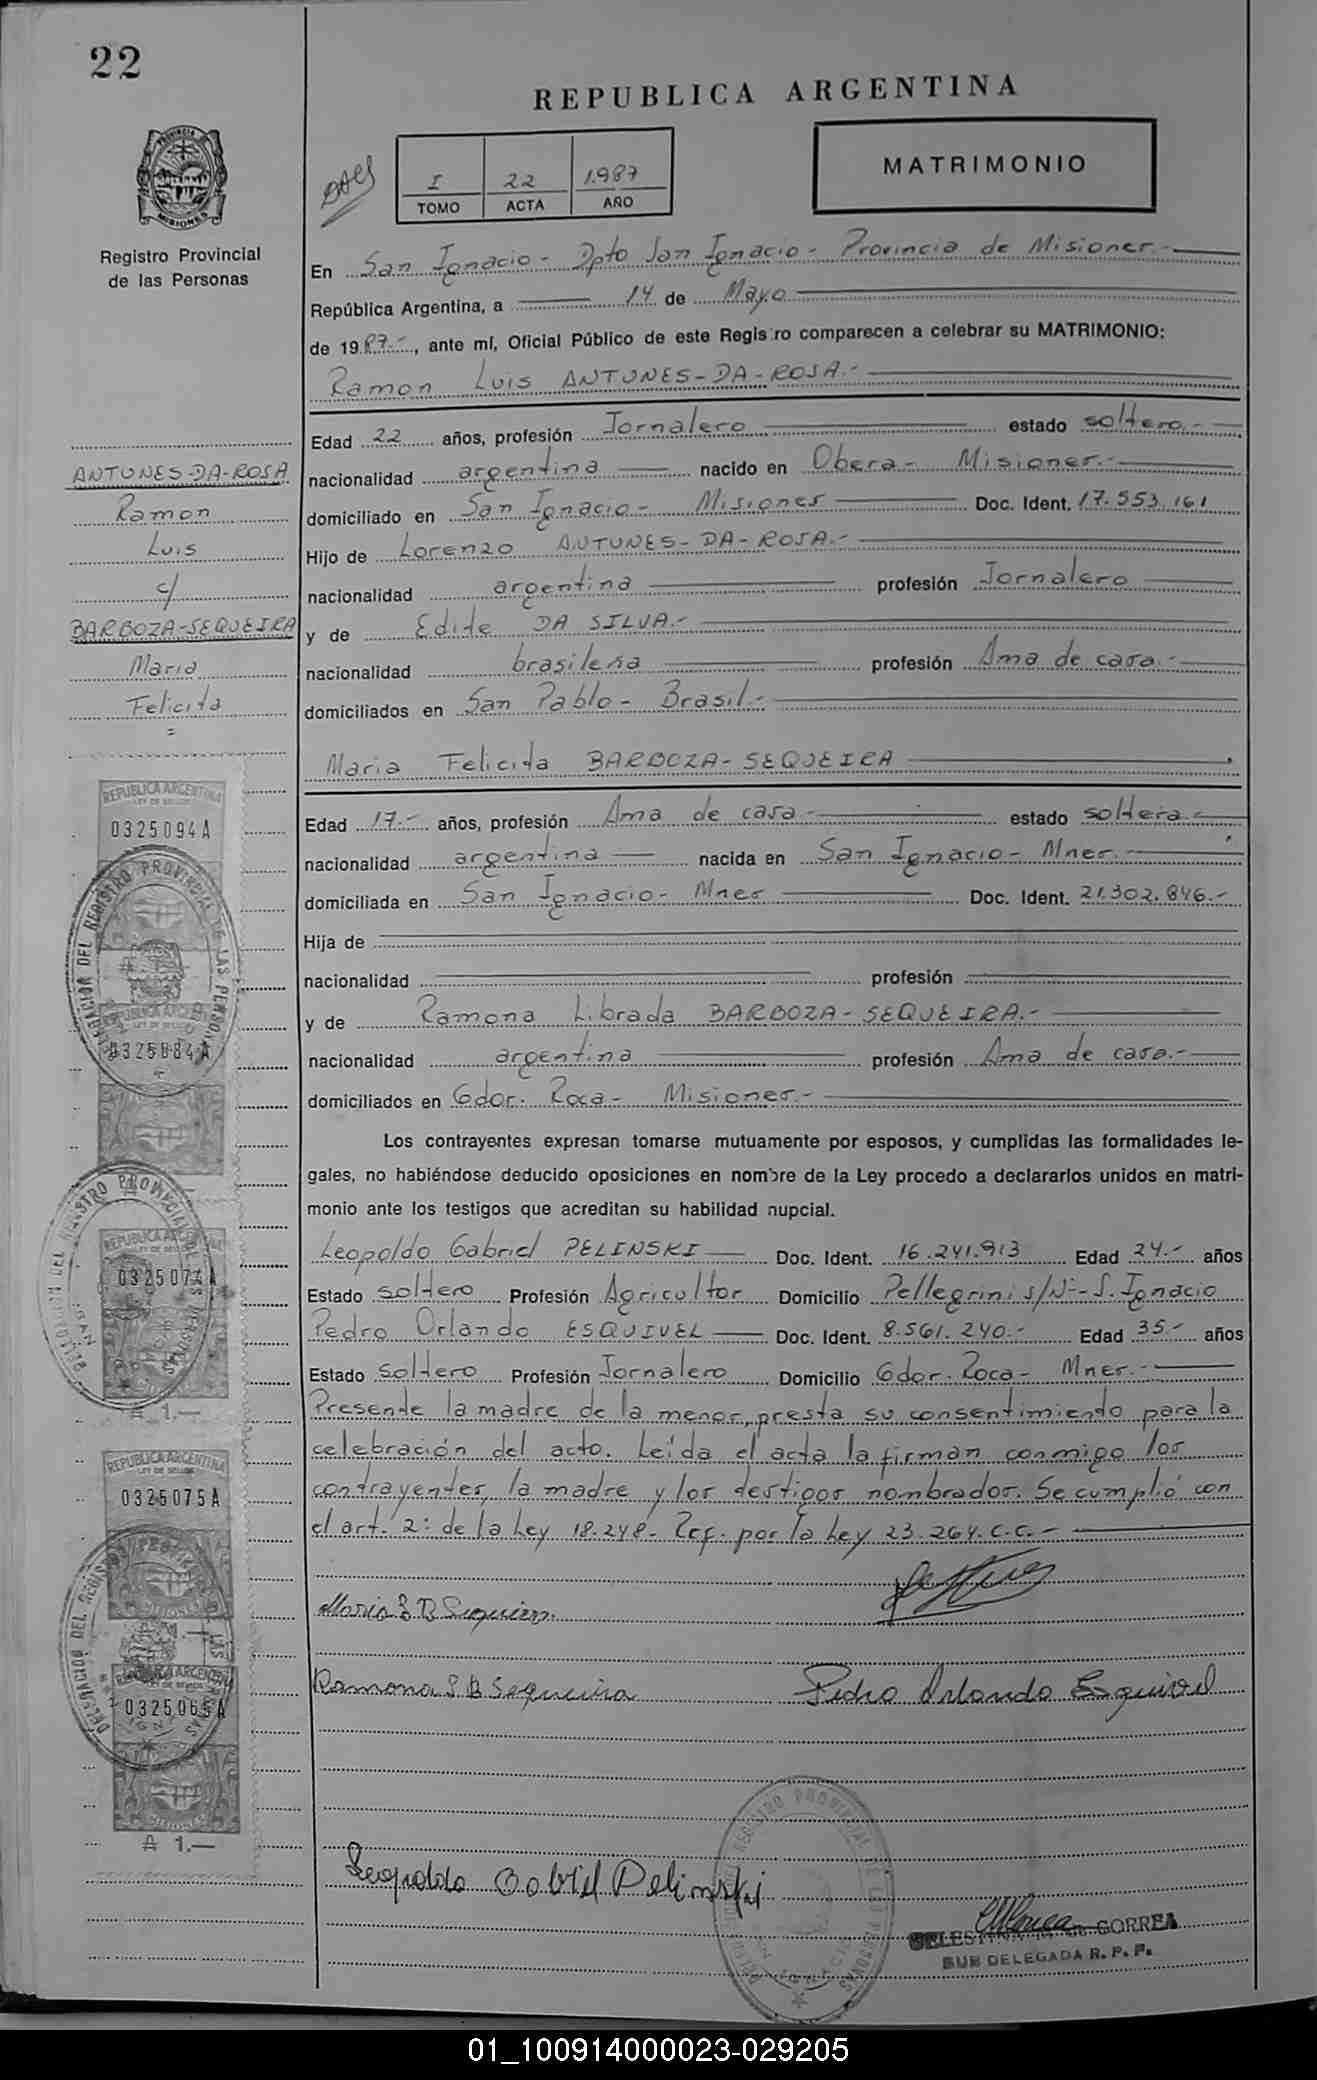 22
REPUBLICA ARGENTINA
MATRIMONIO
I 22 1.987
TOMO ACTA AÑO
PROVINCIA
MISIONES
Registro Provincial
de las Personas
En San Ignacio - Dpto San Ignacio - Provincia de Misiones.-
República Argentina, a 14 de Mayo
de 1987.-, ante mí, Oficial Público de este Registro comparecen a celebrar su MATRIMONIO:
Ramon Luis ANTUNES-DA-ROSA.-
Edad 22 años, profesión Jornalero estado soltero.-
nacionalidad argentina nacido en Obera - Misiones.-
domiciliado en San Ignacio - Misiones Doc. Ident. 17.553.161
Hijo de Lorenzo ANTUNES-DA-ROSA.-
nacionalidad argentina profesión Jornalero
y de Edite DA SILVA.-
nacionalidad brasileña profesión Ama de casa.-
domiciliados en San Pablo - Brasil.-
ANTUNES-DA-ROSA
Ramon
Luis
c/
BARBOZA-SEQUEIRA
Maria
Felicita
=
Maria Felicita BARBOZA-SEQUEIRA
Edad 17.- años, profesión Ama de casa - estado soltera.-
nacionalidad argentina nacida en San Ignacio - Mnes.-
domiciliada en San Ignacio - Mnes Doc. Ident. 21.302.846.-
Hija de
nacionalidad profesión
y de Ramona Librada BARBOZA-SEQUEIRA.-
nacionalidad argentina profesión Ama de casa.-
domiciliados en Gdor. Roca - Misiones.-
Los contrayentes expresan tomarse mutuamente por esposos, y cumplidas las formalidades le-
gales, no habiéndose deducido oposiciones en nombre de la Ley procedo a declararlos unidos en matri-
monio ante los testigos que acreditan su habilidad nupcial.
Leopoldo Gabriel PELINSKI Doc. Ident. 16.241.913 Edad 24.- años
Estado soltero Profesión Agricultor Domicilio Pellegrini s/Nº-S. Ignacio
Pedro Orlando ESQUIVEL Doc. Ident. 8.561.240.- Edad 35.- años
Estado soltero Profesión Jornalero Domicilio Gdor. Roca - Mnes.-
Presente la madre de la menor, presta su consentimiento para la
celebración del acto. Leída el acta la firman conmigo los
contrayentes, la madre y los testigos nombrados. Se cumplió con
el art. 2: de la Ley 18.248- Ref. por la Ley 23.264. C.C.-
Maria F B Sequiera
Ramona L B Sequeira Pedro Orlando Esquivel
Leopoldo Gabriel Pelinski
CORREA
SUB DELEGADA R. P. P.
REPUBLICA ARGENTINA
LEY DE SELLOS
0325094A
DELEGACION DEL REGISTRO PROVINCIAL DE LAS PERSONAS
REPUBLICA ARGENTINA
0325084A
REPUBLICA ARGENTINA
LEY DE SELLOS
0325074A
₳ 1.—
REPUBLICA ARGENTINA
LEY DE SELLOS
0325075A
MISIONES
REPUBLICA ARGENTINA
0325065A
MISIONES
₳ 1.—
01_100914000023-029205